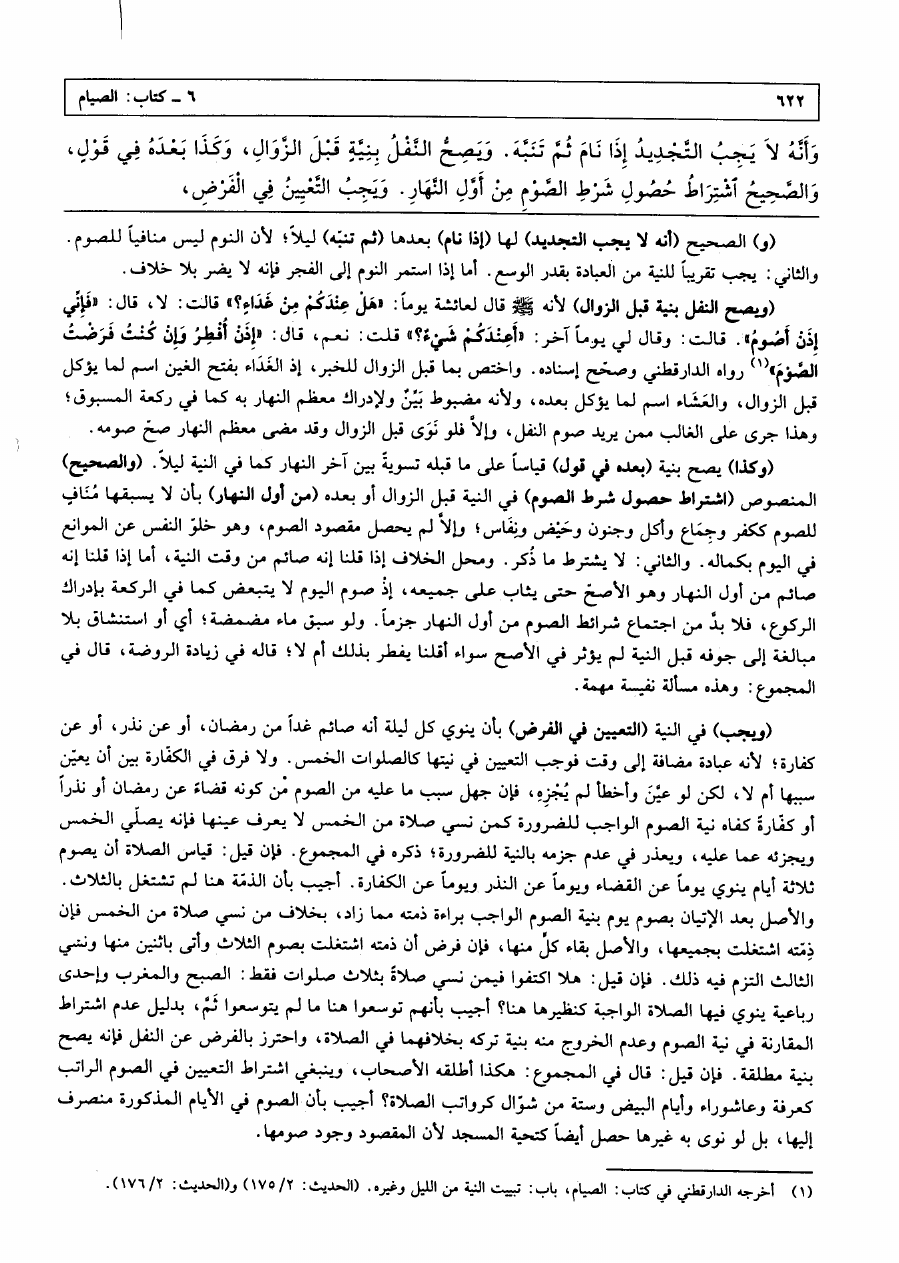 ٦٢٢
٦ ـ كتاب: الصيام
وَأَنَّهُ لاَ يَجِبُ التَّجْدِيدُ إِذَا نَامَ ثُمَّ تَنَبَّهَ. وَيَصِحُّ النَّفْلُ بِنِيَّةٍ قَبْلَ الزَّوَالِ، وَكَذَا بَعْدَهُ فِي قَوْلٍ،
وَالصَّحِيحُ ٱشْتِرَاطُ حُصُولِ شَرْطِ الصَّوْمِ مِنْ أَوَّلِ النَّهَارِ. وَيَجِبُ التَّعْيِينُ فِي الْفَرْضِ،
(و) الصحيح (أنه لا يجب التجديد) لها (إذا نام) بعدها (ثم تنبّه) ليلاً؛ لأن النوم ليس منافياً للصوم.
والثاني: يجب تقريباً للنية من العبادة بقدر الوسع. أما إذا استمر النوم إلى الفجر فإنه لا يضر بلا خلاف.
(ويصح النفل بنية قبل الزوال) لأنه ﷺ قال لعائشة يوماً: «هَلْ عِنْدَكُمْ مِنْ غَدَاءٍ؟» قالت: لا، قال: «فَإِنِّي
إِذَنْ أَصُومُ». قالت: وقال لي يوماً آخر: «أَعِنْدَكُمْ شَيْءٌ؟» قلت: نعم، قال: «إِذَنْ أُفْطِرُ وَإِنْ كُنْتُ فَرَضْتُ
الصَّوْمَ»(١) رواه الدارقطني وصحّح إسناده. واختص بما قبل الزوال للخبر، إذ الغَدَاء بفتح الغين اسم لما يؤكل
قبل الزوال، والعَشَاء اسم لما يؤكل بعده، ولأنه مضبوط بَيِّنٌ ولإدراك معظم النهار به كما في ركعة المسبوق؛
وهذا جرى على الغالب ممن يريد صوم النفل، وإلاَّ فلو نَوَى قبل الزوال وقد مضى معظم النهار صحّ صومه.
(وكذا) يصح بنية (بعده في قول) قياساً على ما قبله تسويةً بين آخر النهار كما في النية ليلاً. (والصحيح)
المنصوص (اشتراط حصول شرط الصوم) في النية قبل الزوال أو بعده (من أول النهار) بأن لا يسبقها مُنَافٍ
للصوم ككفر وجِمَاع وأكل وجنون وحَيْض ونِفَاس؛ وإلاَّ لم يحصل مقصود الصوم، وهو خلوّ النفس عن الموانع
في اليوم بكماله. والثاني: لا يشترط ما ذُكر. ومحل الخلاف إذا قلنا إنه صائم من وقت النية، أما إذا قلنا إنه
صائم من أول النهار وهو الأصحّ حتى يثاب على جميعه، إذْ صوم اليوم لا يتبعض كما في الركعة بإدراك
الركوع، فلا بدَّ من اجتماع شرائط الصوم من أول النهار جزماً. ولو سبق ماء مضمضة؛ أي أو استنشاق بلا
مبالغة إلى جوفه قبل النية لم يؤثر في الأصح سواء أقلنا يفطر بذلك أم لا؛ قاله في زيادة الروضة، قال في
المجموع: وهذه مسألة نفيسة مهمة.
(ويجب) في النية (التعيين في الفرض) بأن ينوي كل ليلة أنه صائم غداً من رمضان، أو عن نذر، أو عن
كفارة؛ لأنه عبادة مضافة إلى وقت فوجب التعيين في نيتها كالصلوات الخمس. ولا فرق في الكفّارة بين أن يعيّن
سببها أم لا، لكن لو عيّنَ وأخطأ لم يُجْزِهِ، فإن جهل سبب ما عليه من الصوم مْن كونه قضاءً عن رمضان أو نذراً
أو كفّارةً كفاه نية الصوم الواجب للضرورة كمن نسي صلاة من الخمس لا يعرف عينها فإنه يصلّي الخمس
ويجزئه عما عليه، ويعذر في عدم جزمه بالنية للضرورة؛ ذكره في المجموع. فإن قيل: قياس الصلاة أن يصوم
ثلاثة أيام ينوي يوماً عن القضاء ويوماً عن النذر ويوماً عن الكفارة. أجيب بأن الذمّة هنا لم تشتغل بالثلاث.
والأصل بعد الإتيان بصوم يوم بنية الصوم الواجب براءة ذمته مما زاد، بخلاف من نسي صلاة من الخمس فإن
ذِمّته اشتغلت بجميعها، والأصل بقاء كلٍّ منها، فإن فرض أن ذمته اشتغلت بصوم الثلاث وأتى باثنين منها ونسي
الثالث التزم فيه ذلك. فإن قيل: هلا اكتفوا فيمن نسي صلاةً بثلاث صلوات فقط: الصبح والمغرب وإحدى
رباعية ينوي فيها الصلاة الواجبة كنظيرها هنا؟ أجيب بأنهم توسعوا هنا ما لم يتوسعوا ثَمَّ، بدليل عدم اشتراط
المقارنة في نية الصوم وعدم الخروج منه بنية تركه بخلافهما في الصلاة، واحترز بالفرض عن النفل فإنه يصح
بنية مطلقة. فإن قيل: قال في المجموع: هكذا أطلقه الأصحاب، وينبغي اشتراط التعيين في الصوم الراتب
كعرفة وعاشوراء وأيام البيض وستة من شوّال كرواتب الصلاة؟ أجيب بأن الصوم في الأيام المذكورة منصرف
إليها، بل لو نوى به غيرها حصل أيضاً كتحية المسجد لأن المقصود وجود صومها.
(١) أخرجه الدارقطني في كتاب: الصيام، باب: تبييت النية من الليل وغيره. (الحديث: ١٧٥/٢) و(الحديث: ١٧٦/٢).